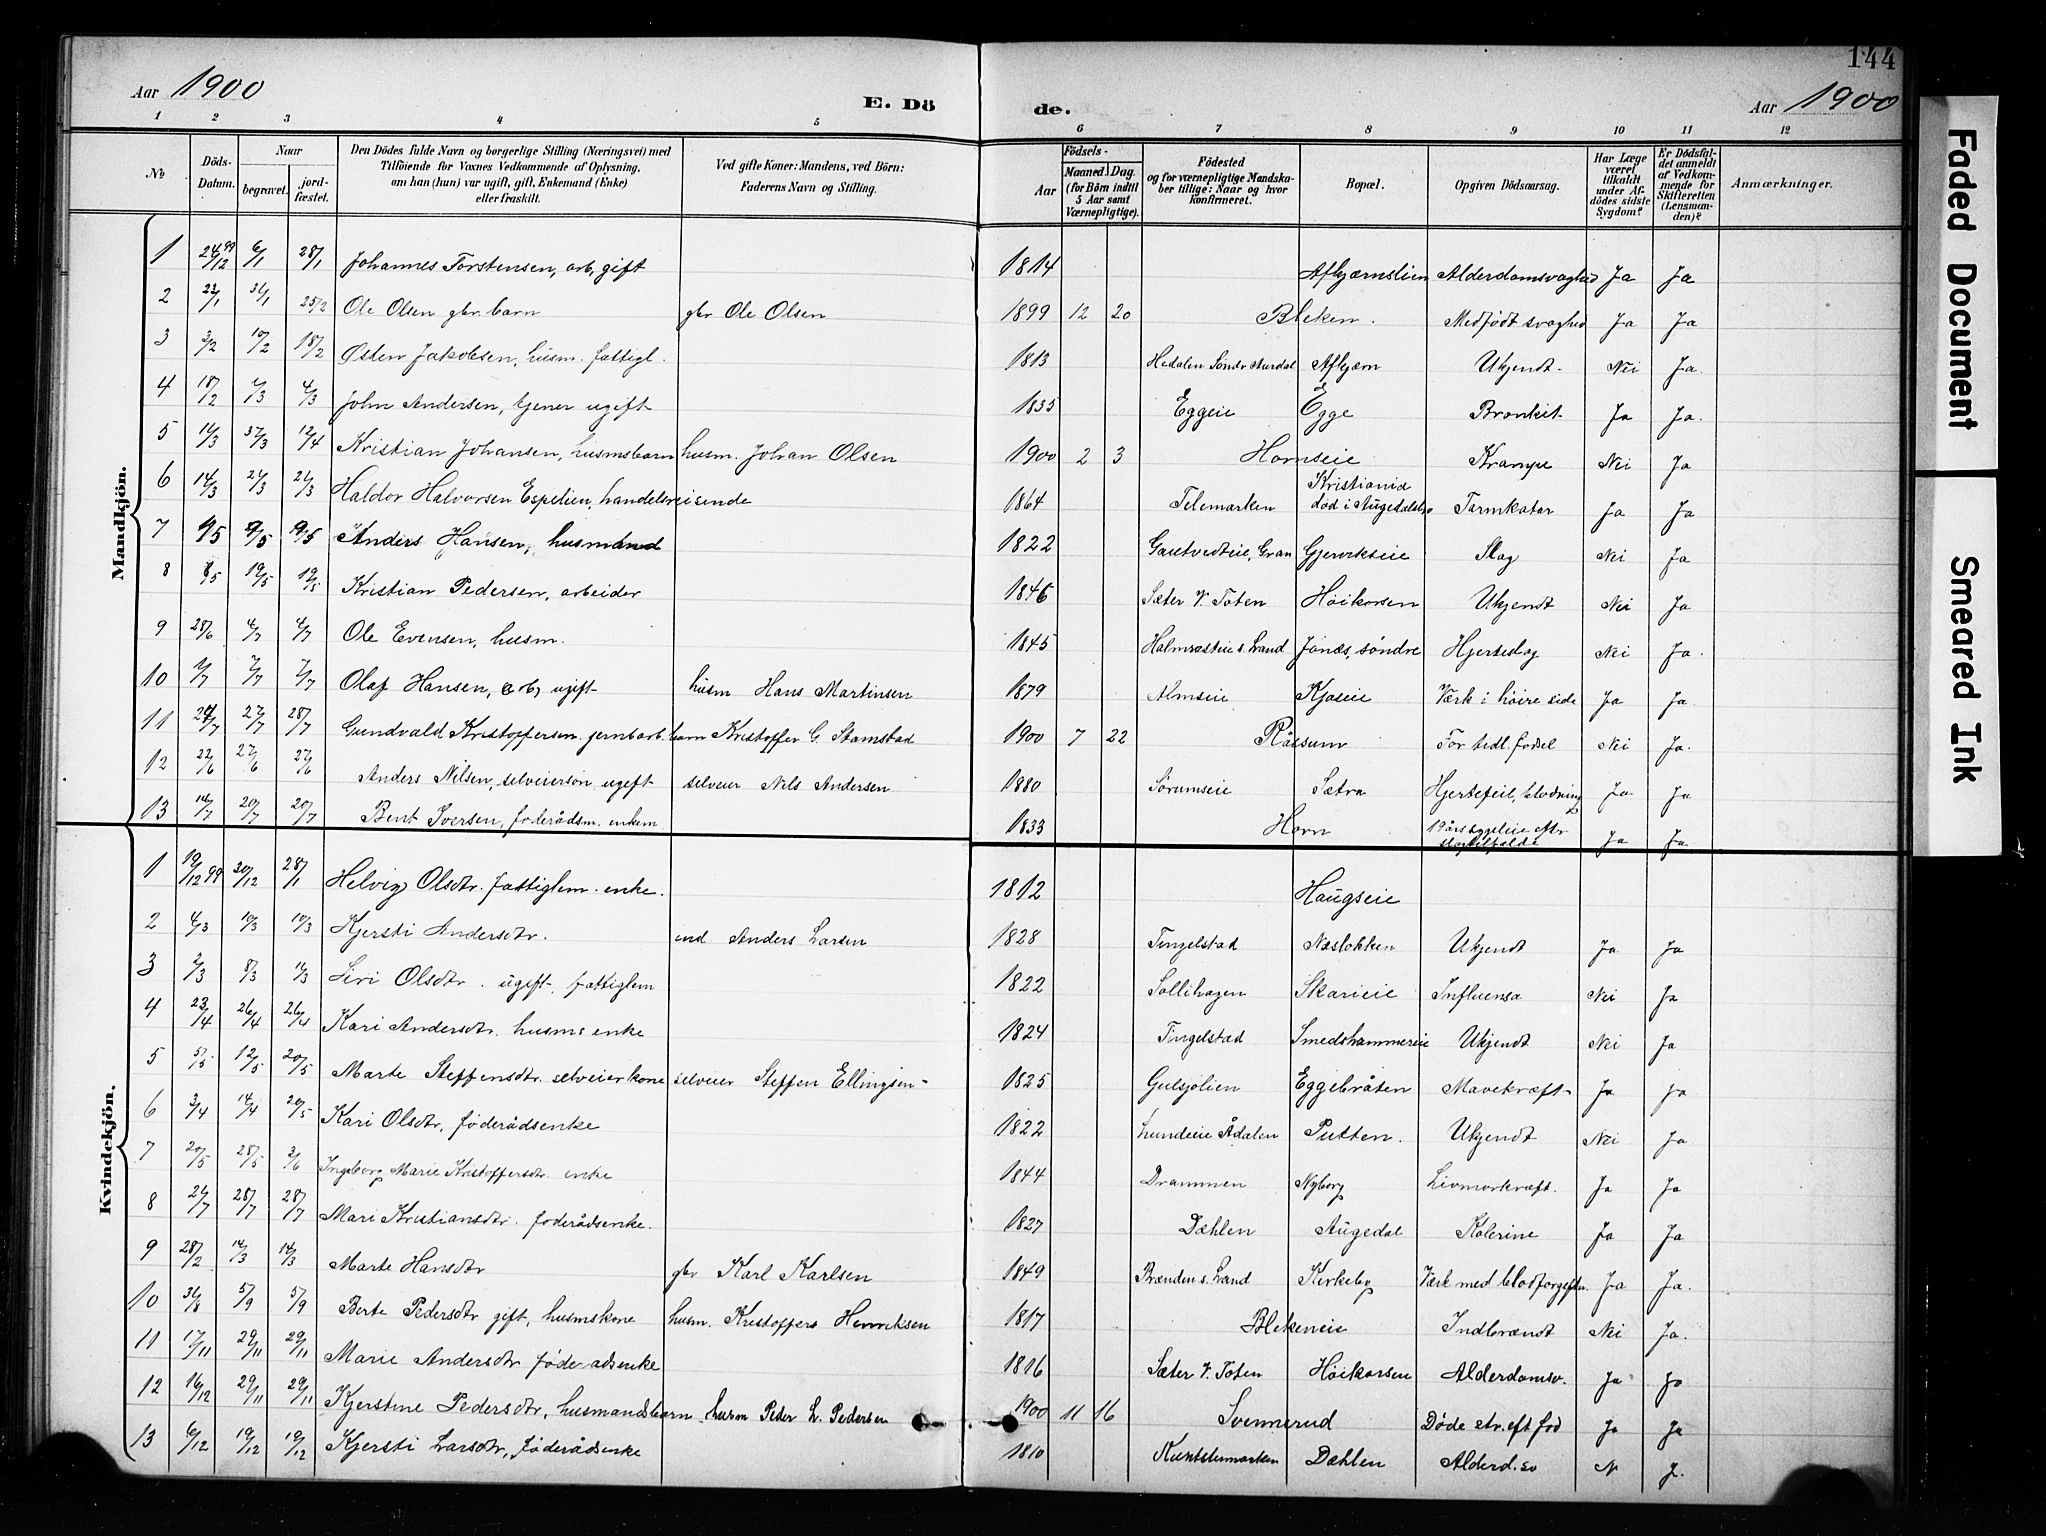 144
Aar 1900 E. Dö de. Aar 1900
1 2 3 4 5 6 7 8 9 10 11 12
№ Döds-Datum. Naar begravet. jord-fæstet. Den Dödes fulde Navn og borgerlige Stilling (Næringsvei) med Tilföiende for Voxnes Vedkommende af Oplysning, om han (hun) var ugift, gift, Enkemand (Enke) eller fraskilt. Ved gifte Koner: Mandens, ved Börn: Faderens Navn og Stilling. Födsels- Aar Maaned Dag. (for Börn indtil 5 Aar samt Værnepligtige). Födested og for værnepligtige Mandskaber tillige: Naar og hvor konfirmeret. Bopæl. Opgiven Dödsaarsag. Har Læge været tilkaldt under Afdödes sidste Sygdom? Er Dödsfaldet anmeldt af Vedkommende for Skifteretten (Lensmanden)? Anmærkninger.
Mandkjön.
1 24/12 99 6/1 28/1 Johannes Torstensen, arb, gift 1814 Afkjærnslien Alderdomsvaghed Ja Ja
2 23/1 31/1 25/2 Ole Olsen gbr. barn gbr Ole Olsen 1899 12 20 Bleken. Medfödt svaghed Ja Ja
3 3/2 10/2 18/2 Østen Jakobsen, husm. fattigl. 1813 Hedalen Söndr Aurdal Afkjærn Ukjendt. Nei Ja.
4 18/2 4/3 John Andersen, tjener ugift 1835 Eggeie Egge Bronkit. Ja Ja.
5 12/4 Kristian Johansen, husmsbarn husm. Johan Olsen 1900 2 3 Hornseie Krampe Nei Ja
6 14/3 Haldor Halvorsen Espelien, handelsreisende 1864 Telemarken Kristiania död i Augedalsbro Tarmkatar Ja Ja
7 Anders Hansen, husmand 1822 Gautvedteie, Gran Gjervikseie Slag Nei Ja
8 8/5 19/5 19/5 Kristian Pedersen, arbeider 1846 Sæter V. Toten Höikorsen Ukjendt Nei Ja
9 28/6 4/7 4/7 Ole Evensen, husm. 1845 Halmrasteie s. Land Jånæs, söndre Hjerteslag Nei Ja.
10 7/7 7/7 Olaf Hansen, arb, ugift husm Hans Martinsen 1879 Almseie Kjoseie Værk i höire side Ja Ja.
11 27/7 28/7 Gundvald Kristoffersen jernbarb. barn Kristoffer G. Stamstad 1900 7 22 Råssum For tidl. födsel Nei Ja.
12 22/6 27/6 27/6 Anders Nilsen, selveiersön ugift selveier Nils Andersen 1880 Sörumseie Sætra Hjertefeil, blodning Ja Ja
13 14/7 20/7 20/7 Bent Iversen, föderådsm. enkem 1833 Horn slagtilfælde Ja Ja
Kvindekjön.
1 19/12 99 30/12 28/1 Helvig Olsdtr. fattiglem. enke. 1812 Haugseie
2 4/3 10/3 10/3 Kjersti Andersdtr. Anders Larsen 1828 Tingelstad Næslökken Ukjendt Ja Ja
3 2/3 8/3 Siri Olsdtr. ugift, fattiglem 1822 Sollihagen Skarieie Influensa Nei Ja
4 23/4 26/4 26/4 Kari Andersdtr. husms enke 1824 Tingelstad Smedshammereie Ukjendt Nei Ja
5 5/5 12/5 20/5 Marte Steffensdtr. selveierkone selveier Steffen Ellingsen 1825 Gulsjölien Eggebråten Mavekræft Ja Ja
6 3/4 14/4 20/5 Kari Olsdtr, föderådsenke 1822 Lundeie Ådalen Putten. Ukjendt Nei Ja
7 20/5 28/5 2/6 Ingeborg Marie Kristoffersdtr. enke 1844 Drammen Nyborg Livmorkræft. Ja Ja
8 28/7 28/7 Mari Kristiansdtr. föderådsenke. 1827 Dæhlen Augedal Kolerine Ja Ja
9 28/2 14/3 14/3 Marte Hansdtr gbr Karl Karlsen 1849 Brænden s. Land Kirkeby Værk med blodforgiftn. Ja Ja.
10 31/8 5/9 5/9 Berte Pedersdtr gift, husmskone husm. Kristoffers Henriksen 1817 Blekeneie Indbrændt Nei Ja.
11 17/11 29/11 29/11 Marie Andersdtr föderådsenke 1816 Sæter V. Toten Höikorsen Alderdomsv. Ja Ja
12 16/12 29/11 29/11 Kjerstine Pedersdtr, husmandsbarn husm Peder L. Pedersen 1900 11 16 Svennerud Döde str. eft föd Ja Ja
13 6/12 19/12 19/12 Kjersti Larsdtr, föderådsenke 1810 Dæhlen Alderd. sv N J.
Faded Document
Smeared Ink